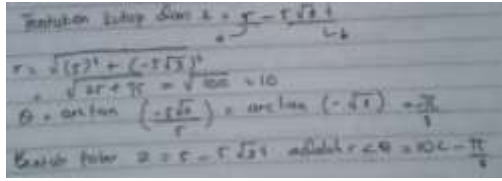 Tentukan kutup dari z = 5 - 5√3 i
a b
r = √(5)² + (-5√3)²
= √25 + 75 = √100 = 10
θ = arc tan (-5√3/5) = arc tan (-√3) = -π/3
Bentuk polar z = 5 - 5√3 i adalah r∠θ = 10∠-π/3